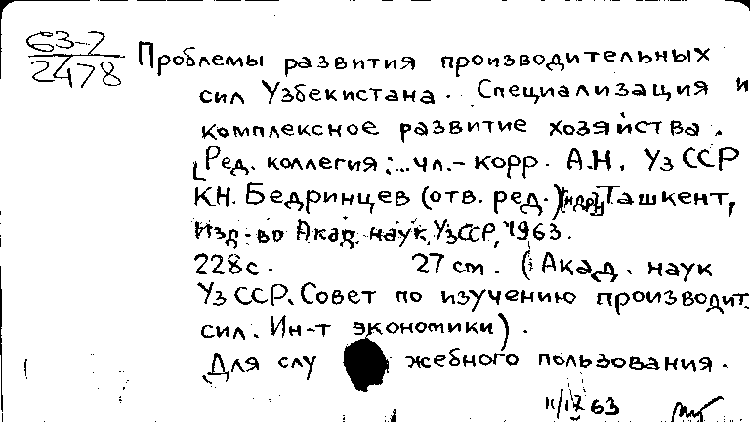 63-2
2478
Проблемы развития производительных
сил Узбекистана. Специализация и
комплексное развитие хозяйства.
[Ред. коллегия:...чл.-корр. А.Н. УзССР
К.Н. Бедринцев (отв. ред.) [и др.] Ташкент,
Изд-во Акад. наук УзССР, 1963.
228с. 27 см. (Акад. наук
УзССР. Совет по изучению производит.
сил. Ин-т экономики).
Для служебного пользования.
63